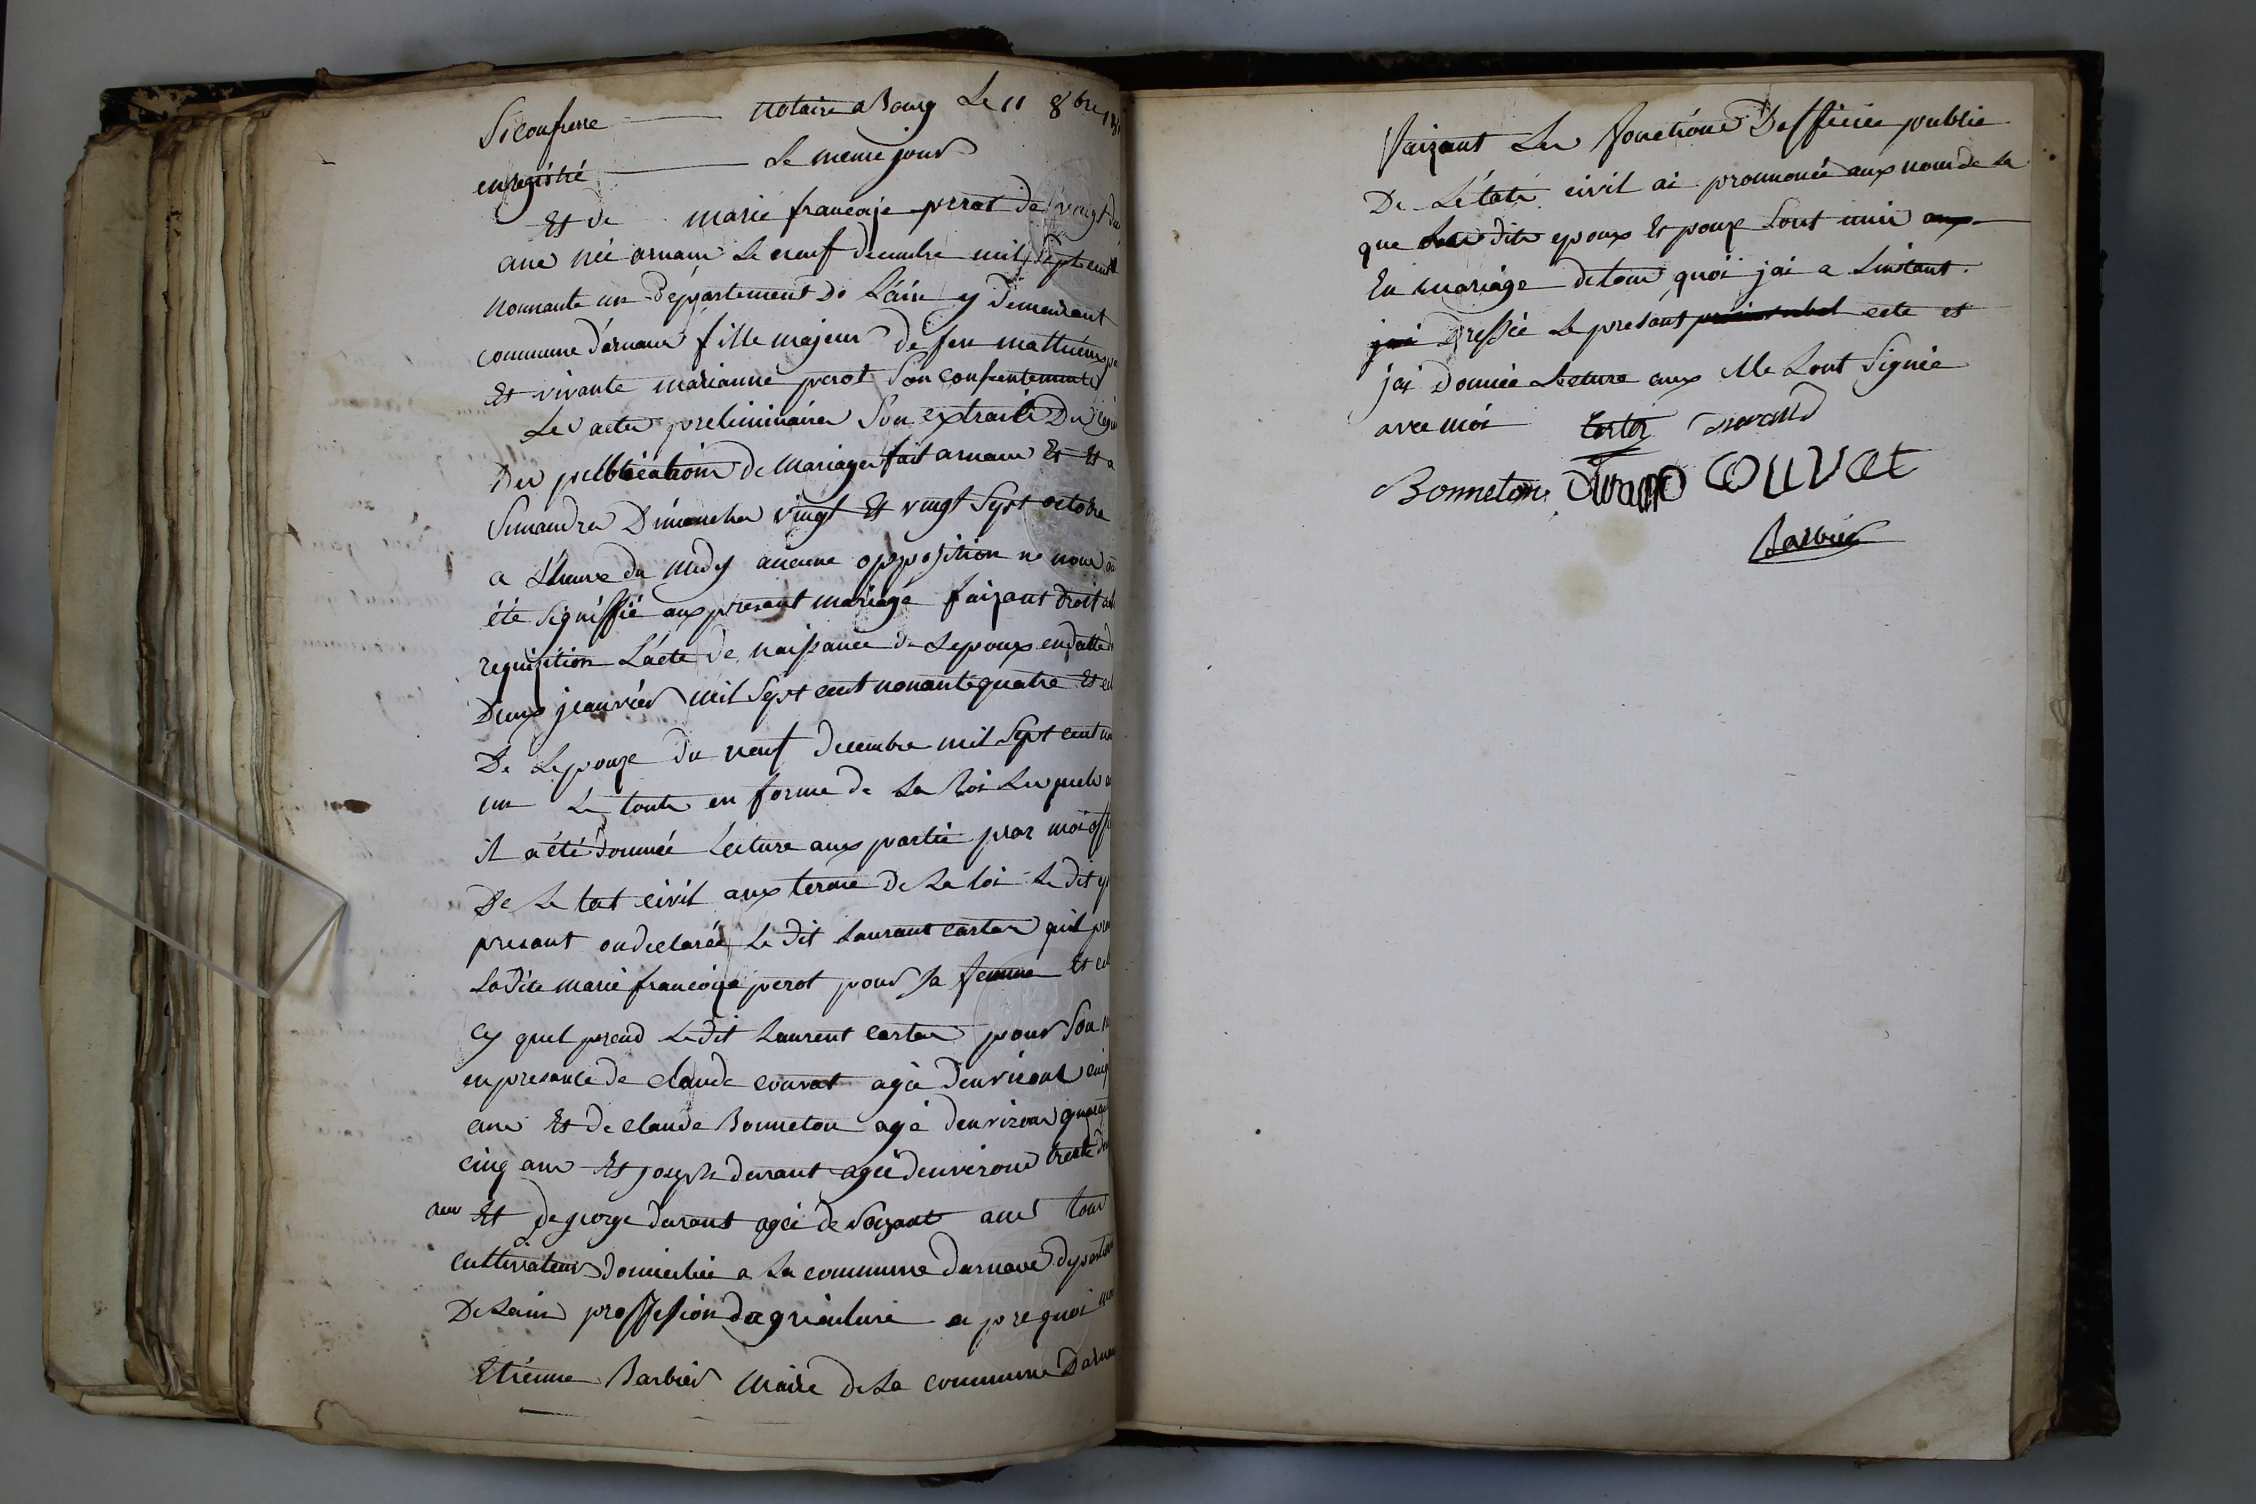 Siconfrerre notaire a Bourg Le 11 8bre
enregistré le meme jour
Et de marie francoise perot de vingt
ans née arnans Le neuf decembre mil sept cent
nonante un département de L'ain y demeurant
commune d'arnans fille majeur de feu mathieu
Et vivante marianne perot son consentement
Les actes preliminaires son extraits Du
Des publications de Mariages fait arnans Et Et a
Simandre Dimanches vingt Et vingt sept octobre
a L'heure du midy aucune oppposition ne nous
été signiffié aux présent mariage faizant droit
requisition L'acte de naissance de L'epoux en datte
Deux jeanvier mil sept cent nonante quatre Et
De Lepouze du neuf decembre mil sept cent
un Le toute en forme de La loi Lesquels
il a été donnée Lecture aux partie par moi
De Le tat civil aux terme de La loi Le dit
presant on declarée Le dit Laurant cartan quil
La dite marie francoise perot pour sa femme Et
cy quel prend Le dit Laurent cartan pour son
en presance de claude couvat agée denvirons
ans Et De claude Bonneton agé denvirons
cinq ans Et joseph durrant agée denvirons trente
ans Et De george durant agée de soizant ans tous
cultivateurs domicilié a La commune darnans
De Lain proffesion dagriculure a pre quoi
Etienne Barbier Maire de La commune
Faizant Les fonctions Dofficiée public
De L'etate civil ai pronnoncée aux nom de La
que Les dite epoux Et pouze sont unis aux
En mariage de tous quoi jai a Linstant
jai Dressée Le presant acte et
jai Donnée Lecture aux Ille sont Signée
avec moi carton durand
Bonneton Durand COUVAt
Barbier